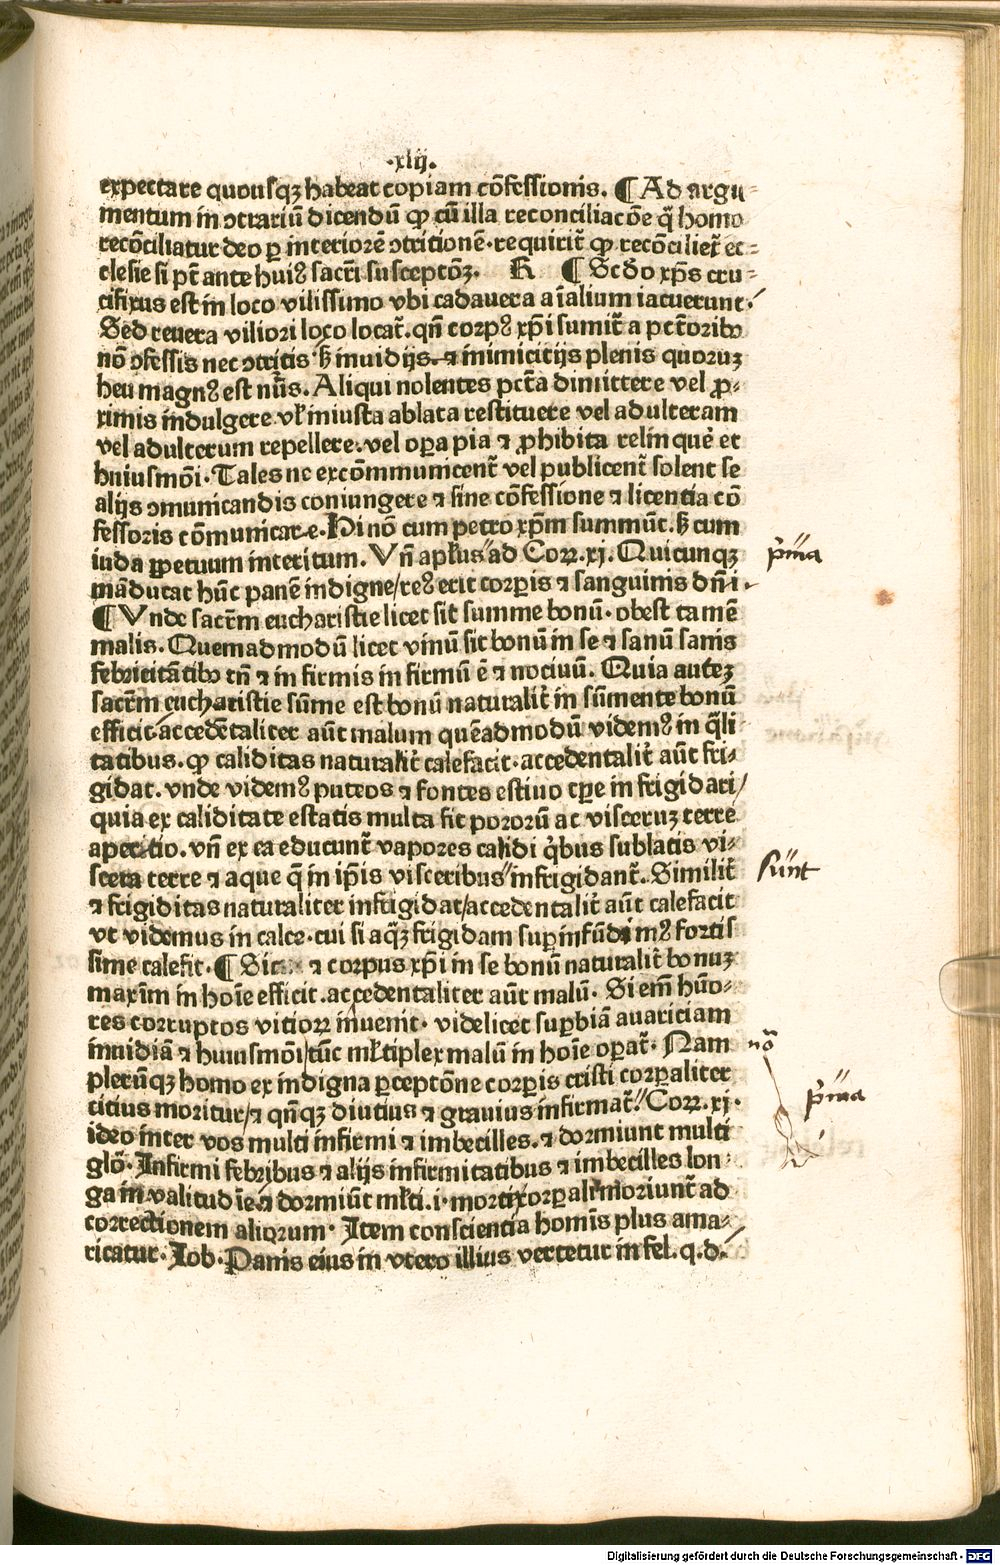 ·xlij.
expectare quousqꝫ habeat copiam cōfessionis. ¶ Ad argu-
mentum in ꝯtrariū dicendū ꝙ cū illa reconciliacōe q̄ homo
recōciliatur deo ꝑ interiorē ꝯtritionē·requirit̄ ꝙ recōciliet̄ ec-
clesie si pt̄ ante huiꝰ sacr̄i susceptōꝫ. K ¶ Scd̄o xp̄s cru-
cifixus est in loco vilissimo vbi cadauera aīalium iacuerunt·
Sed reuera viliori loco locat̄. qn̄ corpꝰ xp̄i sumit̄ a pctōribꝰ
nō ꝯfessis nec ꝯtritis·sꝫ inuidijs·⁊ inimicitijs plenis quoruꝫ
heu magnꝰ est nūs. Aliqui nolentes pctā dimittere vel ꝓ-
ximis indulgere·vl̄ iniusta ablata restituere vel adulteram
vel adulterum repellere·vel oꝑa pia ⁊ ꝓhibita relinquē et
huiusmōi·Tales nc excōmmunicent̄ vel publicent̄ solent se
alijs ꝯmunicandis coniungere ⁊ sine cōfessione ⁊ licentia cō
fessoris cōmunicare·Hi nō cum petro xp̄m summūt. sꝫ cum
iuda ꝑpetuum interitum. Vn̄ apl̄us ad Corꝝ.xj. Quicunqꝫ
māducat hūc panē indigne/reꝰ erit corꝑis ⁊ sanguinis dn̄i·
¶ Vnde sacr̄m eucharistie licet sit summe bonū·obest tamē
malis. Quemadmodū licet vinū sit bonū in se ⁊ sanū sanis
febricitātibꝰ tn̄ ⁊ infirmis infirmū ē ⁊ nociuū. Quia auteꝫ
sacr̄m eucharistie sūme est bonū naturalit̄ in sūmente bonū
efficit·accedētaliter aūt malum quēadmodū videmꝰ in q̄li
tātibus·ꝙ caliditas naturalit̄ calefacit·accedentalit̄ aūt fri-
gidat·vnde videmꝰ puteos ⁊ fontes estiuo tꝑe infrigidari/
quia ex caliditate estatis multa fit pororū ac visceruꝫ terre
apericio.vn̄ ex ea educunt̄ vapores calidi q̇bus sublatis vi-
scera terre ⁊ aque q̄ in ip̄is visceribus infrigidant̄·Similit̄
⁊ frigiditas naturaliter infrigidat/accedentalit̄ aūt calefacit
vt videmus in calce·cui si aq̄ꝫ frigidam suꝑinfūdimꝰ fortis
sime calefit·¶ Sic ⁊ corpus xp̄i in se bonū naturalit̄ bonuꝫ
maxīm in hoīe efficit·accedentaliter aūt malū·Si em̄ hūo-
res corruptos vitioꝝ inuenit·videlicet suꝑbiā auariciam
inuidiā ⁊ huiusmōi tūc ml̄tiplex malū in hoīe oꝑat̄·Nam
plerūqꝫ homo ex indigna ꝑceptōne corꝑis cristi corꝑaliter
citius moritur/⁊ qn̄qꝫ diutius ⁊ grauius infirmat̄·Corꝝ.xj·
ideo inter vos multi infirmi ⁊ imbecilles·⁊ dormiunt multi
glō·Infirmi febribus ⁊ alijs infirmitatibus ⁊ imbecilles lon-
ga in valitudie·⁊ dormiūt ml̄ti·i·morti corꝑali moriunt̄ ad
correctionem aliorum·Item consciencia homīs plus ama-
ricatur·Job·Panis eius in vtero illius vertetur in fel.q.d.
p̄ma
sunt
nō
p̄ma